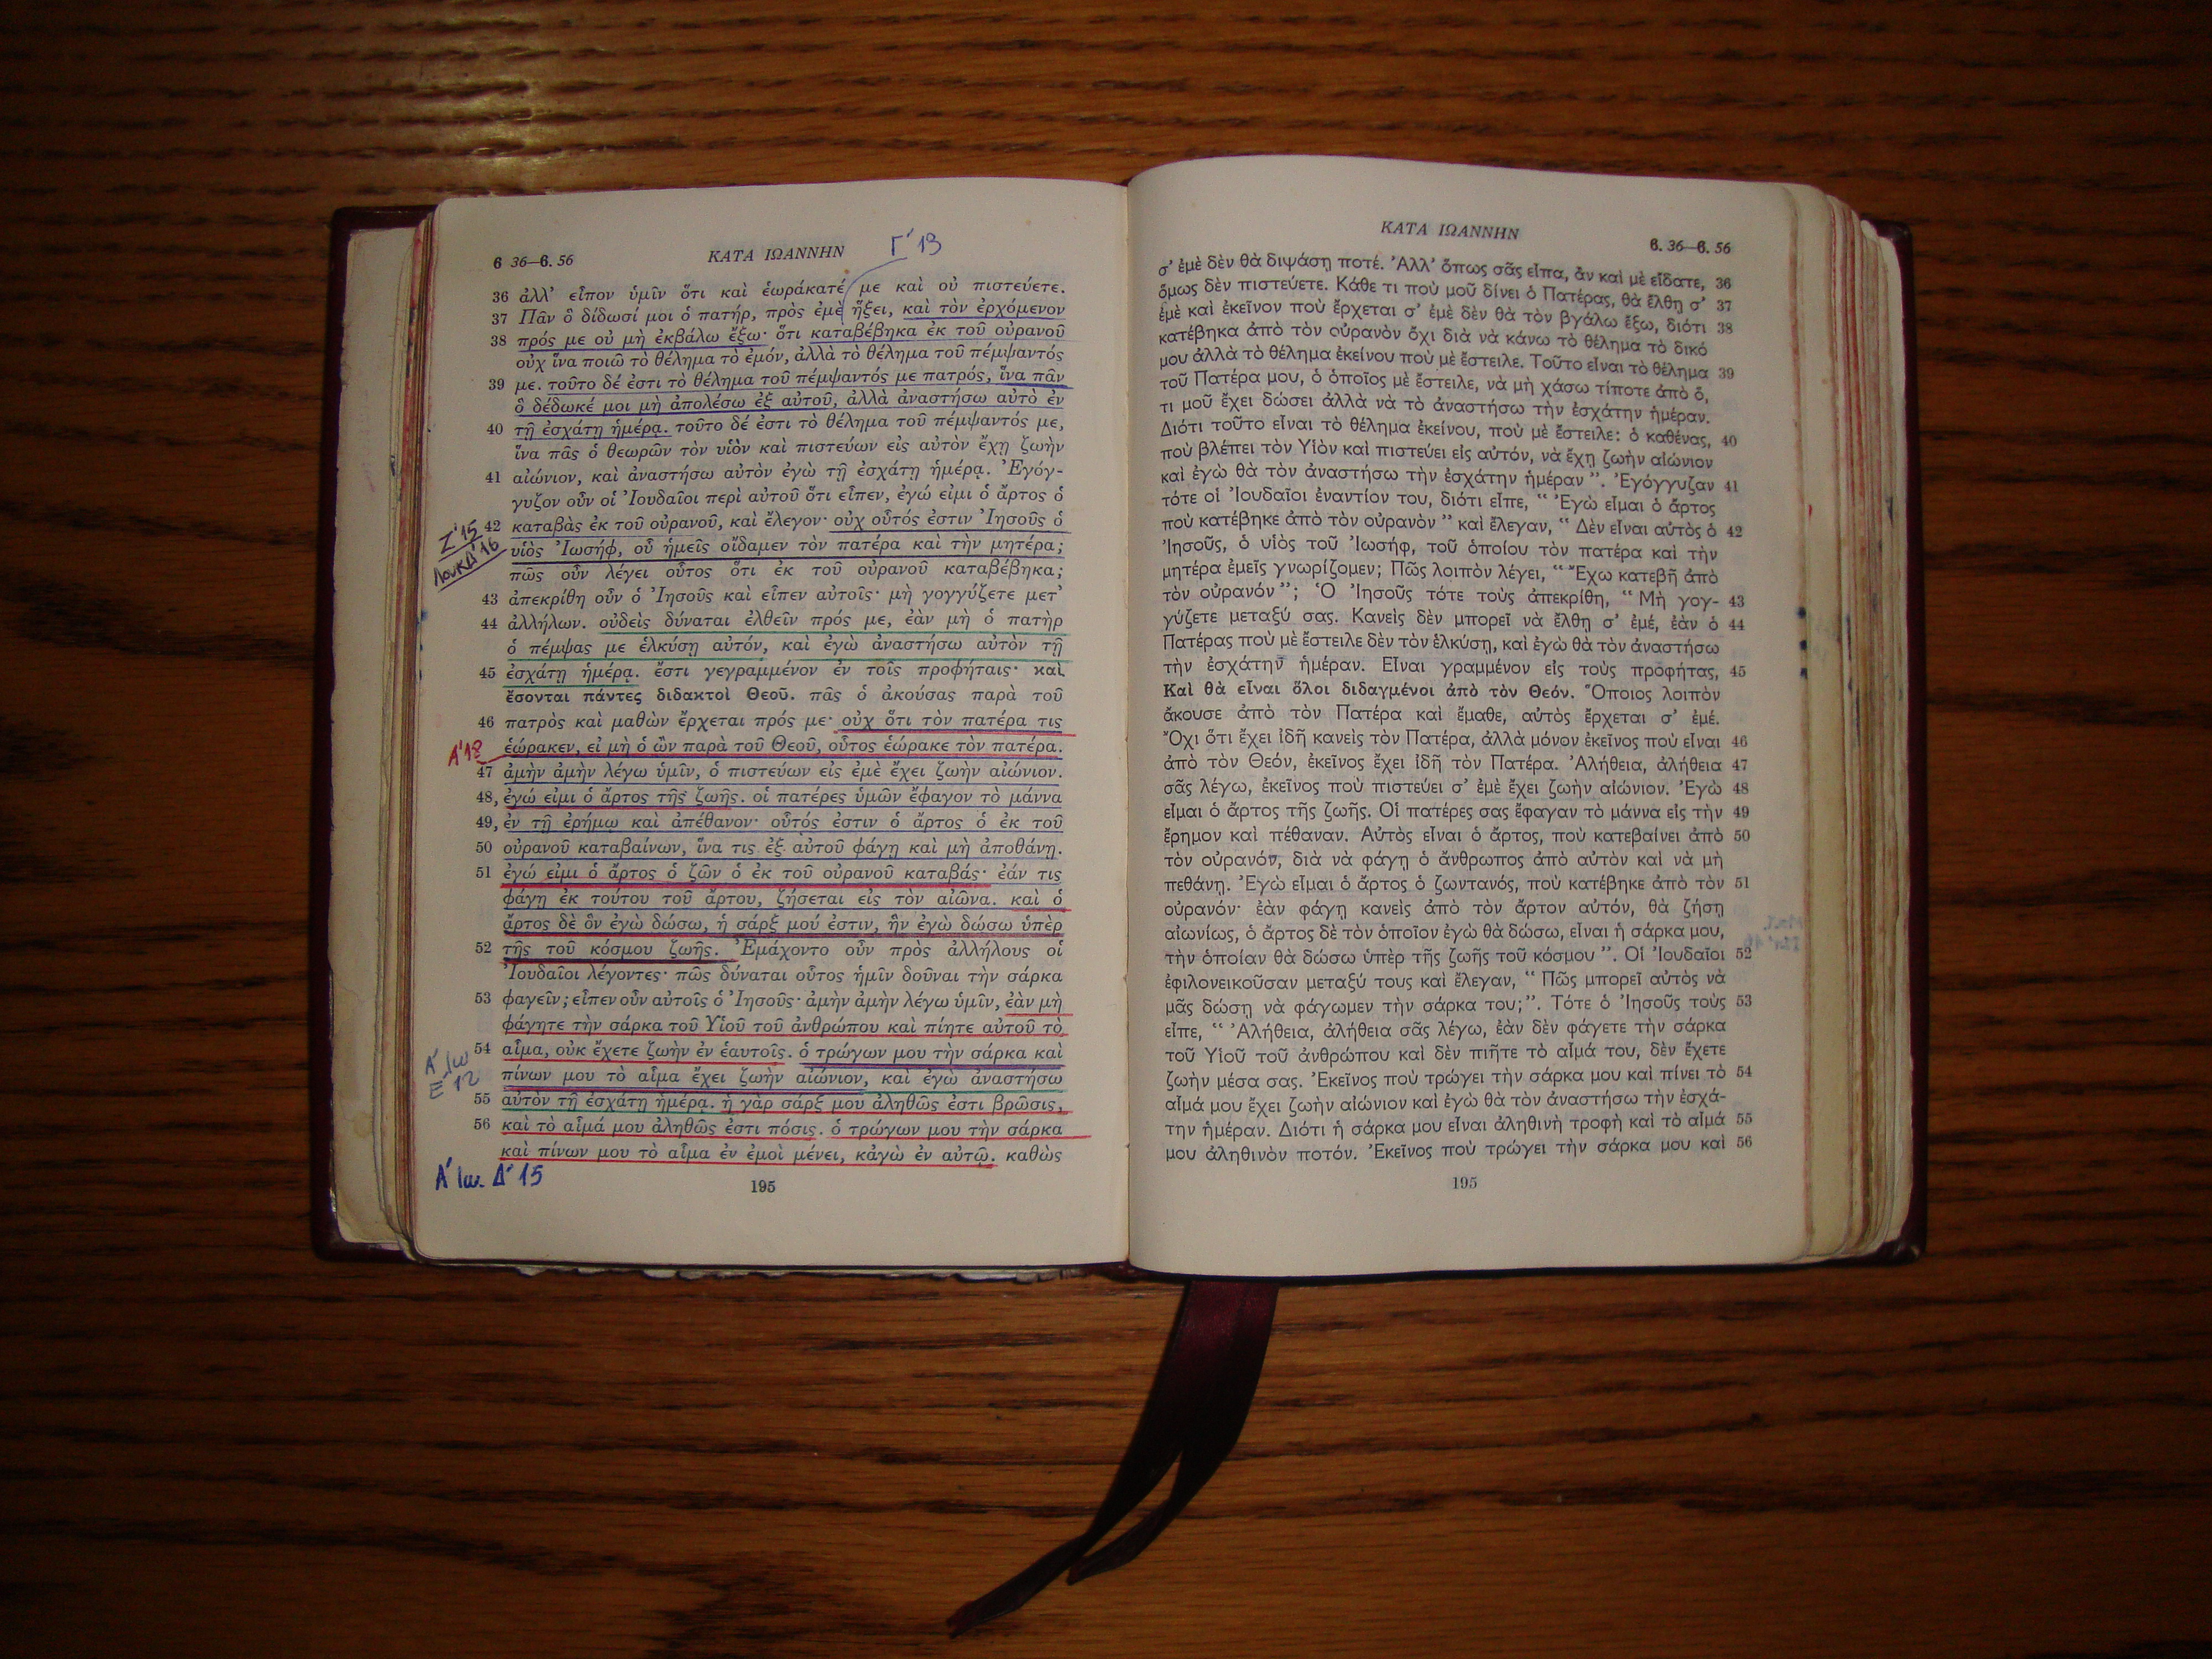 6 36—6. 56
ΚΑΤΑ ΙΩΑΝΝΗΝ
Γ΄ 13
36 ἀλλ’ εἶπον ὑμῖν ὅτι καὶ ἑωράκατέ με καὶ οὐ πιστεύετε.
37 Πᾶν ὃ δίδωσί μοι ὁ πατήρ, πρὸς ἐμὲ ἥξει, καὶ τὸν ἐρχόμενον
38 πρός με οὐ μὴ ἐκβάλω ἔξω· ὅτι καταβέβηκα ἐκ τοῦ οὐρανοῦ
οὐχ ἵνα ποιῶ τὸ θέλημα τὸ ἐμόν, ἀλλὰ τὸ θέλημα τοῦ πέμψαντός
39 με. τοῦτο δέ ἐστι τὸ θέλημα τοῦ πέμψαντός με πατρός, ἵνα πᾶν
ὃ δέδωκέ μοι μὴ ἀπολέσω ἐξ αὐτοῦ, ἀλλὰ ἀναστήσω αὐτὸ ἐν
40 τῇ ἐσχάτῃ ἡμέρᾳ. τοῦτο δέ ἐστι τὸ θέλημα τοῦ πέμψαντός με,
ἵνα πᾶς ὁ θεωρῶν τὸν υἱὸν καὶ πιστεύων εἰς αὐτὸν ἔχῃ ζωὴν
41 αἰώνιον, καὶ ἀναστήσω αὐτὸν ἐγὼ τῇ ἐσχάτῃ ἡμέρᾳ. Ἐγόγ-
γυζον οὖν οἱ Ἰουδαῖοι περὶ αὐτοῦ ὅτι εἶπεν, ἐγώ εἰμι ὁ ἄρτος ὁ
Ζ΄ 15
42 καταβὰς ἐκ τοῦ οὐρανοῦ, καὶ ἔλεγον· οὐχ οὗτός ἐστιν Ἰησοῦς ὁ
Λουκ Δ΄ 16
υἱὸς Ἰωσήφ, οὗ ἡμεῖς οἴδαμεν τὸν πατέρα καὶ τὴν μητέρα;
πῶς οὖν λέγει οὗτος ὅτι ἐκ τοῦ οὐρανοῦ καταβέβηκα;
43 ἀπεκρίθη οὖν ὁ Ἰησοῦς καὶ εἶπεν αὐτοῖς· μὴ γογγύζετε μετ’
44 ἀλλήλων. οὐδεὶς δύναται ἐλθεῖν πρός με, ἐὰν μὴ ὁ πατὴρ
ὁ πέμψας με ἑλκύσῃ αὐτόν, καὶ ἐγὼ ἀναστήσω αὐτὸν τῇ
45 ἐσχάτῃ ἡμέρᾳ. ἔστι γεγραμμένον ἐν τοῖς προφήταις· καὶ
ἔσονται πάντες διδακτοὶ Θεοῦ. πᾶς ὁ ἀκούσας παρὰ τοῦ
46 πατρὸς καὶ μαθὼν ἔρχεται πρός με· οὐχ ὅτι τὸν πατέρα τις
Α΄ 18
ἑώρακεν, εἰ μὴ ὁ ὢν παρὰ τοῦ Θεοῦ, οὗτος ἑώρακε τὸν πατέρα.
47 ἀμὴν ἀμὴν λέγω ὑμῖν, ὁ πιστεύων εἰς ἐμὲ ἔχει ζωὴν αἰώνιον.
48, ἐγώ εἰμι ὁ ἄρτος τῆς ζωῆς. οἱ πατέρες ὑμῶν ἔφαγον τὸ μάννα
49, ἐν τῇ ἐρήμῳ καὶ ἀπέθανον· οὗτός ἐστιν ὁ ἄρτος ὁ ἐκ τοῦ
50 οὐρανοῦ καταβαίνων, ἵνα τις ἐξ αὐτοῦ φάγῃ καὶ μὴ ἀποθάνῃ.
51 ἐγώ εἰμι ὁ ἄρτος ὁ ζῶν ὁ ἐκ τοῦ οὐρανοῦ καταβάς· ἐάν τις
φάγῃ ἐκ τούτου τοῦ ἄρτου, ζήσεται εἰς τὸν αἰῶνα. καὶ ὁ
ἄρτος δὲ ὃν ἐγὼ δώσω, ἡ σάρξ μού ἐστιν, ἣν ἐγὼ δώσω ὑπὲρ
52 τῆς τοῦ κόσμου ζωῆς. Ἐμάχοντο οὖν πρὸς ἀλλήλους οἱ
Ἰουδαῖοι λέγοντες· πῶς δύναται οὗτος ἡμῖν δοῦναι τὴν σάρκα
53 φαγεῖν; εἶπεν οὖν αὐτοῖς ὁ Ἰησοῦς· ἀμὴν ἀμὴν λέγω ὑμῖν, ἐὰν μὴ
φάγητε τὴν σάρκα τοῦ Υἱοῦ τοῦ ἀνθρώπου καὶ πίητε αὐτοῦ τὸ
Α΄ Ιω
Ε΄ 12
54 αἷμα, οὐκ ἔχετε ζωὴν ἐν ἑαυτοῖς. ὁ τρώγων μου τὴν σάρκα καὶ
πίνων μου τὸ αἷμα ἔχει ζωὴν αἰώνιον, καὶ ἐγὼ ἀναστήσω
55 αὐτὸν τῇ ἐσχάτῃ ἡμέρᾳ. ἡ γὰρ σάρξ μου ἀληθῶς ἐστι βρῶσις,
56 καὶ τὸ αἷμά μου ἀληθῶς ἐστι πόσις. ὁ τρώγων μου τὴν σάρκα
καὶ πίνων μου τὸ αἷμα ἐν ἐμοὶ μένει, κἀγὼ ἐν αὐτῷ. καθὼς
Α΄ Ιω. Δ΄ 15
195
ΚΑΤΑ ΙΩΑΝΝΗΝ
6. 36—6. 56
σ’ ἐμὲ δὲν θὰ διψάσῃ ποτέ. Ἀλλ’ ὅπως σᾶς εἶπα, ἂν καὶ μὲ εἴδατε, 36
ὅμως δὲν πιστεύετε. Κάθε τι ποὺ μοῦ δίνει ὁ Πατέρας, θὰ ἔλθῃ σ’ 37
ἐμὲ καὶ ἐκεῖνον ποὺ ἔρχεται σ’ ἐμὲ δὲν θὰ τὸν βγάλω ἔξω, διότι 38
κατέβηκα ἀπὸ τὸν οὐρανὸν ὄχι διὰ νὰ κάνω τὸ θέλημα τὸ δικό
μου ἀλλὰ τὸ θέλημα ἐκείνου ποὺ μὲ ἔστειλε. Τοῦτο εἶναι τὸ θέλημα 39
τοῦ Πατέρα μου, ὁ ὁποῖος μὲ ἔστειλε, νὰ μὴ χάσω τίποτε ἀπὸ ὅ,
τι μοῦ ἔχει δώσει ἀλλὰ νὰ τὸ ἀναστήσω τὴν ἐσχάτην ἡμέραν.
Διότι τοῦτο εἶναι τὸ θέλημα ἐκείνου, ποὺ μὲ ἔστειλε: ὁ καθένας, 40
ποὺ βλέπει τὸν Υἱὸν καὶ πιστεύει εἰς αὐτόν, νὰ ἔχῃ ζωὴν αἰώνιον
καὶ ἐγὼ θὰ τὸν ἀναστήσω τὴν ἐσχάτην ἡμέραν ”. Ἐγόγγυζαν 41
τότε οἱ Ἰουδαῖοι ἐναντίον του, διότι εἶπε, “ Ἐγὼ εἶμαι ὁ ἄρτος
ποὺ κατέβηκε ἀπὸ τὸν οὐρανὸν ” καὶ ἔλεγαν, “ Δὲν εἶναι αὐτὸς ὁ 42
Ἰησοῦς, ὁ υἱὸς τοῦ Ἰωσήφ, τοῦ ὁποίου τὸν πατέρα καὶ τὴν
μητέρα ἐμεῖς γνωρίζομεν; Πῶς λοιπὸν λέγει, “ Ἔχω κατεβῆ ἀπὸ
τὸν οὐρανόν ”; Ὁ Ἰησοῦς τότε τοὺς ἀπεκρίθη, “ Μὴ γογ- 43
γύζετε μεταξύ σας. Κανεὶς δὲν μπορεῖ νὰ ἔλθῃ σ’ ἐμέ, ἐὰν ὁ 44
Πατέρας ποὺ μὲ ἔστειλε δὲν τὸν ἑλκύσῃ, καὶ ἐγὼ θὰ τὸν ἀναστήσω
τὴν ἐσχάτην ἡμέραν. Εἶναι γραμμένον εἰς τοὺς προφήτας, 45
Καὶ θὰ εἶναι ὅλοι διδαγμένοι ἀπὸ τὸν Θεόν. Ὅποιος λοιπὸν
ἄκουσε ἀπὸ τὸν Πατέρα καὶ ἔμαθε, αὐτὸς ἔρχεται σ’ ἐμέ.
Ὄχι ὅτι ἔχει ἰδῆ κανεὶς τὸν Πατέρα, ἀλλὰ μόνον ἐκεῖνος ποὺ εἶναι 46
ἀπὸ τὸν Θεόν, ἐκεῖνος ἔχει ἰδῆ τὸν Πατέρα. Ἀλήθεια, ἀλήθεια 47
σᾶς λέγω, ἐκεῖνος ποὺ πιστεύει σ’ ἐμὲ ἔχει ζωὴν αἰώνιον. Ἐγὼ 48
εἶμαι ὁ ἄρτος τῆς ζωῆς. Οἱ πατέρες σας ἔφαγαν τὸ μάννα εἰς τὴν 49
ἔρημον καὶ πέθαναν. Αὐτὸς εἶναι ὁ ἄρτος, ποὺ κατεβαίνει ἀπὸ 50
τὸν οὐρανόν, διὰ νὰ φάγῃ ὁ ἄνθρωπος ἀπὸ αὐτὸν καὶ νὰ μὴ
πεθάνῃ. Ἐγὼ εἶμαι ὁ ἄρτος ὁ ζωντανός, ποὺ κατέβηκε ἀπὸ τὸν 51
οὐρανόν· ἐὰν φάγῃ κανεὶς ἀπὸ τὸν ἄρτον αὐτόν, θὰ ζήσῃ
αἰωνίως, ὁ ἄρτος δὲ τὸν ὁποῖον ἐγὼ θὰ δώσω, εἶναι ἡ σάρκα μου,
τὴν ὁποίαν θὰ δώσω ὑπὲρ τῆς ζωῆς τοῦ κόσμου ”. Οἱ Ἰουδαῖοι 52
ἐφιλονεικοῦσαν μεταξύ τους καὶ ἔλεγαν, “ Πῶς μπορεῖ αὐτὸς νὰ
μᾶς δώσῃ νὰ φάγωμεν τὴν σάρκα του;”. Τότε ὁ Ἰησοῦς τοὺς 53
εἶπε, “ Ἀλήθεια, ἀλήθεια σᾶς λέγω, ἐὰν δὲν φάγετε τὴν σάρκα
τοῦ Υἱοῦ τοῦ ἀνθρώπου καὶ δὲν πιῆτε τὸ αἷμά του, δὲν ἔχετε
ζωὴν μέσα σας. Ἐκεῖνος ποὺ τρώγει τὴν σάρκα μου καὶ πίνει τὸ 54
αἷμά μου ἔχει ζωὴν αἰώνιον καὶ ἐγὼ θὰ τὸν ἀναστήσω τὴν ἐσχά-
την ἡμέραν. Διότι ἡ σάρκα μου εἶναι ἀληθινὴ τροφὴ καὶ τὸ αἷμά 55
μου ἀληθινὸν ποτόν. Ἐκεῖνος ποὺ τρώγει τὴν σάρκα μου καὶ 56
195